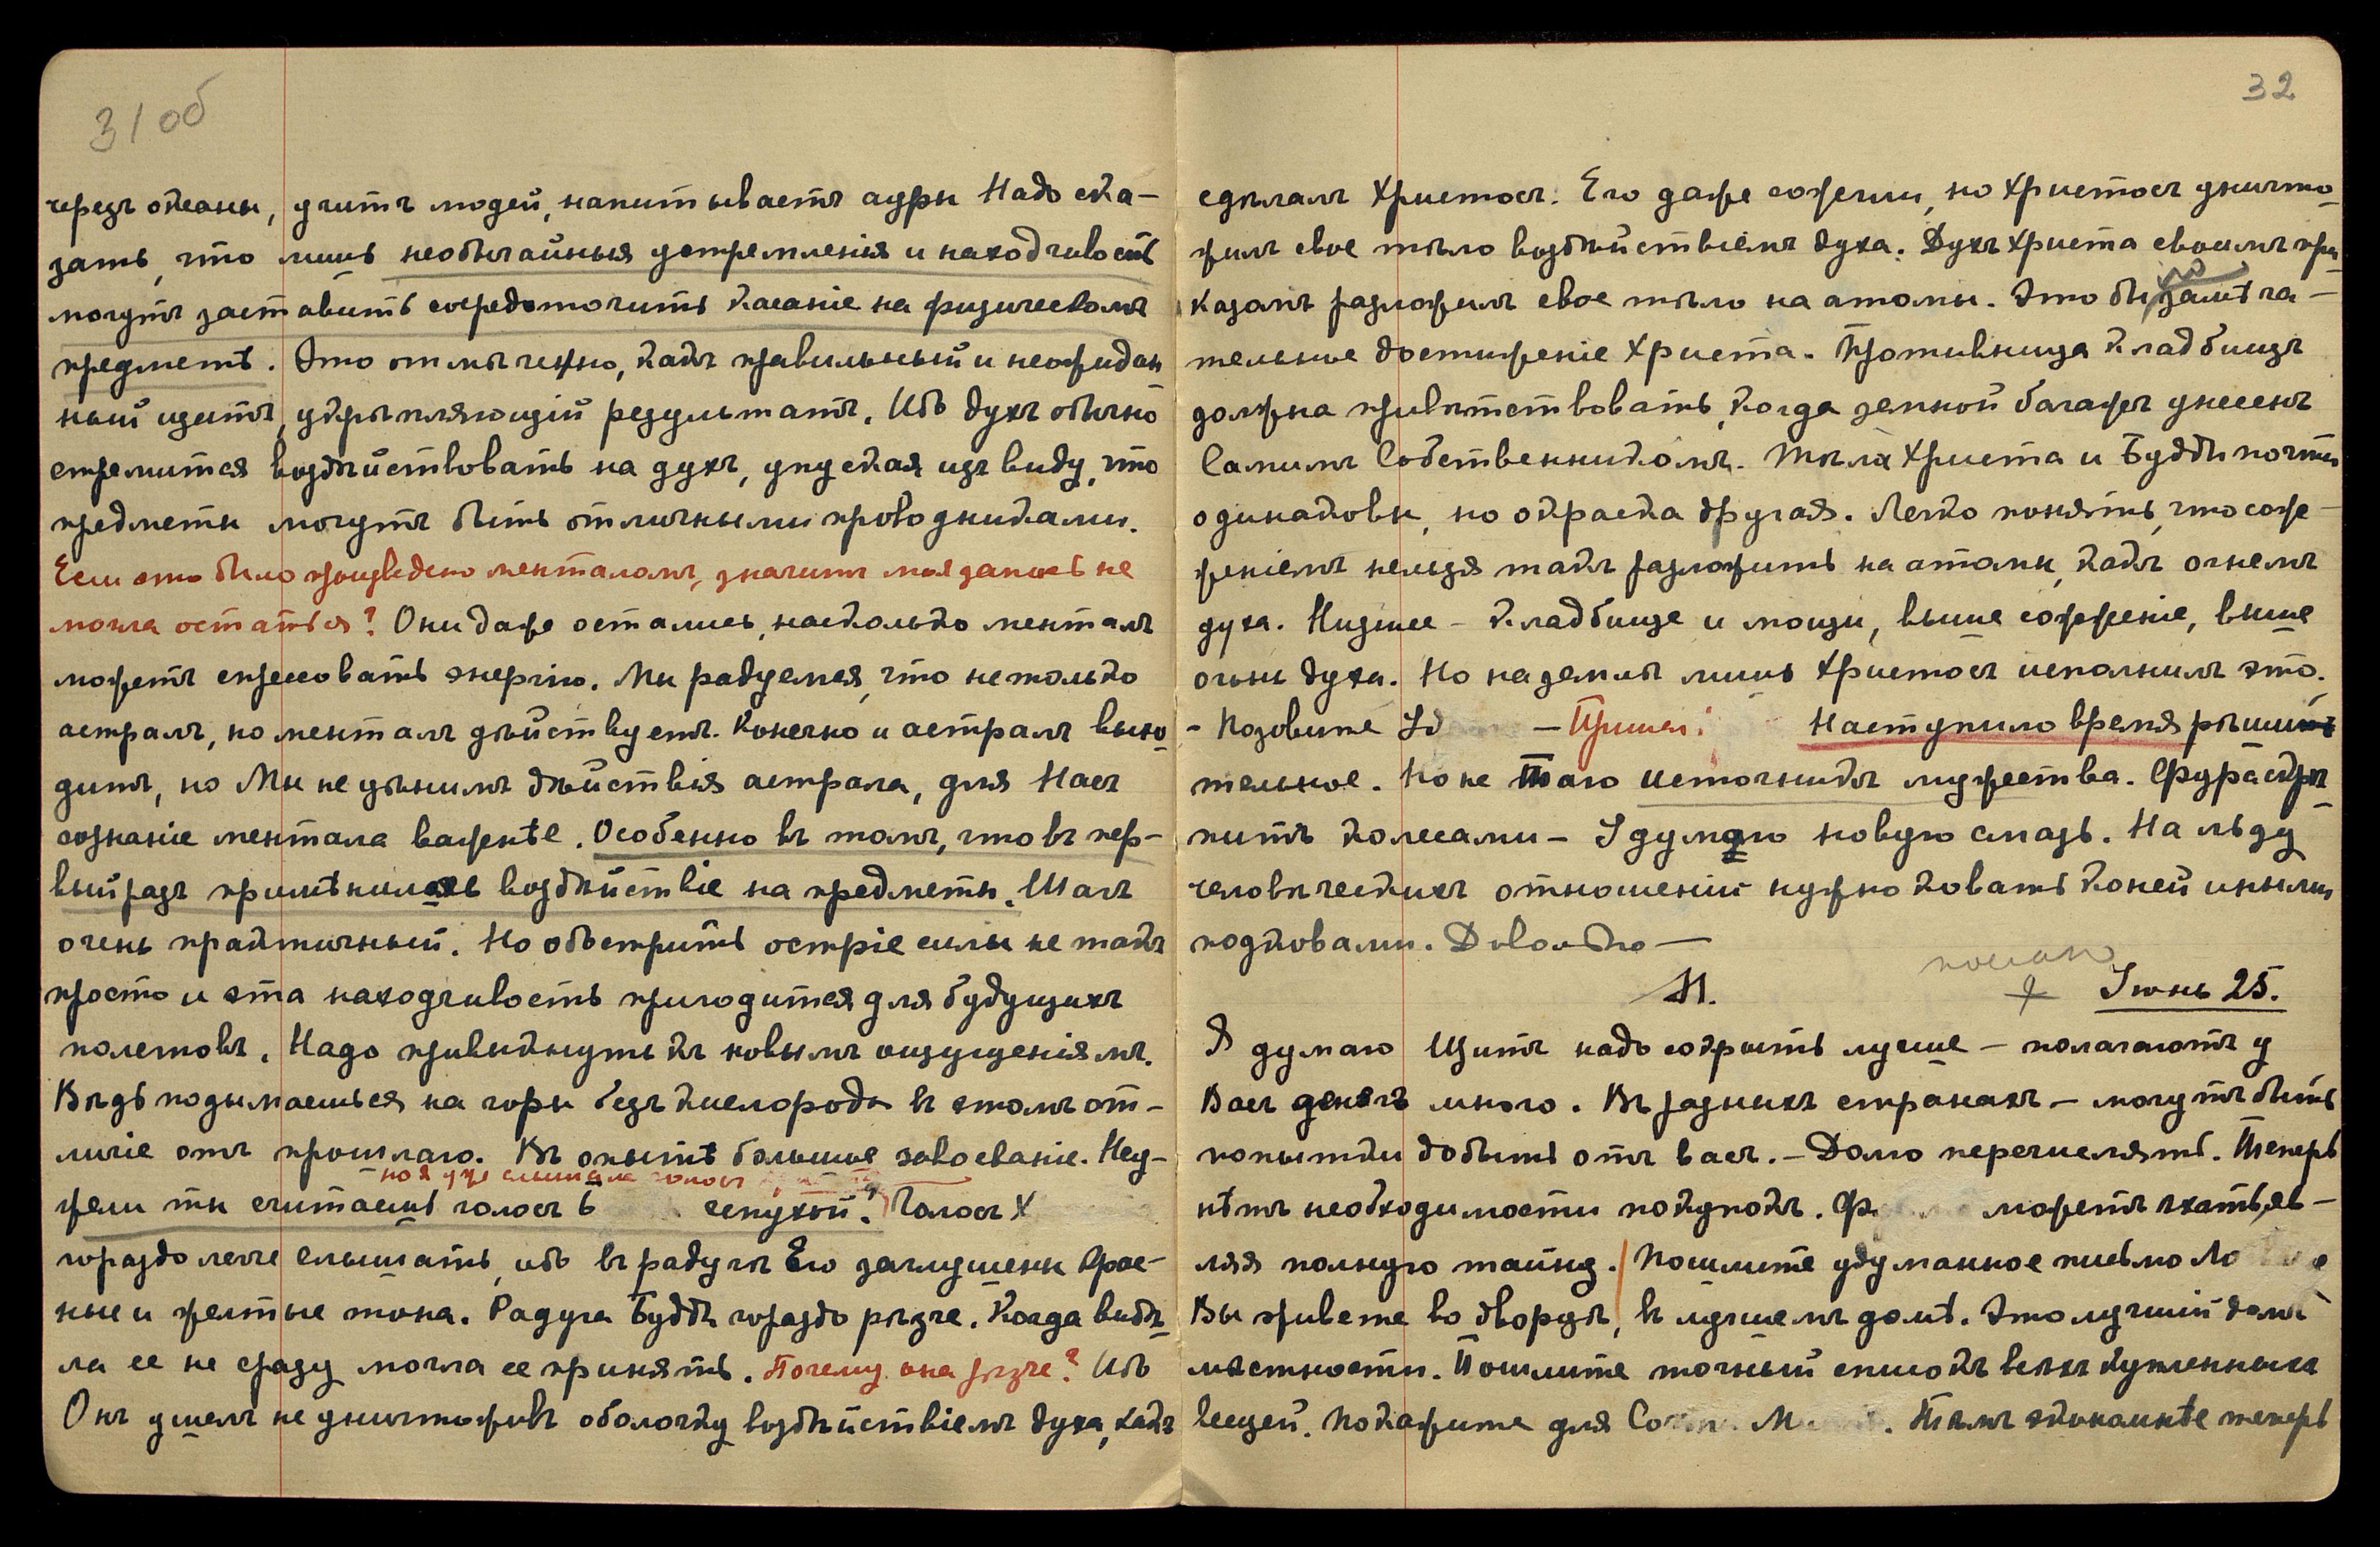 31 об
черезъ океаны, учитъ людей, напитываетъ ауры Надо ска-
зать, что лишь необычайныя устремленія и находчивость
могутъ заставить сосредоточить касаніе на физическомъ
предметѣ. Это отмѣчено, какъ правильный и неожидан
ный щитъ, укрѣпляющій результатъ. Ибо духъ обычно
стремится воздѣйствовать на духъ, упуская изъ виду, что
предметы могутъ быть отличными проводниками.
Если это было произведено менталомъ, значитъ моя запись не
могла остаться? Они даже остались, насколько менталъ
можетъ спресовать энергію. Мы радуемся, что не только
астралъ, но менталъ дѣйствуетъ. Конечно и астралъ выхо-
дитъ, но Мы не цѣнимъ дѣйствія астрала, для Насъ
сознаніе ментала важнѣе. Особенно въ томъ, что въ пер-
вый разъ примѣнилось воздѣйствіе на предметы. Шагъ
очень практичный. Но обострить остріе силы не такъ
просто и эта находчивость пригодится для будущихъ
полетовъ. Надо привыкнуть къ новымъ ощущеніямъ.
Вѣдь подымаешься на горы безъ кислорода въ этомъ от-
личіе отъ прошлаго. Въ опытѣ большое завоеваніе. Неу-
но я уже слышала голосъ
жели ты считаешь голосъ Б сепухой? Голосъ Х
гораздо легче слышать, ибо въ радугѣ Его заглушены крас-
ные и желтые тона. Радуга Будды гораздо рѣзче. Когда видѣ-
ла ее не сразу могла ее принять. Почему она рѣзче? Ибо
Онъ ушелъ не уничтоживъ оболочку воздѣйствіемъ духа, какъ
32
сдѣлалъ Христосъ. Его даже сожгли, но Христосъ уничто-
жилъ свое тѣло воздѣйствіемъ духа. Духъ Христа своимъ при-
казомъ разложилъ свое тѣло на атомы. Это бы замѣча-
тельное достиженіе Христа. Противница кладбищъ
должна привѣтствовать, когда земной багажъ унесенъ
Самимъ Собственникомъ. Тѣла Христа и Будды почти
одинаковы, но окраска другая. Легко понять, что соже-
женіемъ нельзя такъ разложить на атомы, какъ огнемъ
духа. Низшее – кладбище и мощи, выше сожженіе, выше
огонь духа. Но на землѣ лишь Христосъ исполнилъ это.
- Позовите Уд – Пришел: Наступило время рѣши
тельное. Но не Тaго источникъ мужества. Фура скри
питъ колесами – Удумаю новую смазь. На льду
человѣческихъ отношеній нужно ковать коней иными
подковами. Довольно —
М.
Іюнь 25.
Я думаю Щитъ надо сокрыть лучше – полагаютъ у
Васъ денегъ много. Въ разныхъ странахъ – могутъ быть
попытки добыть отъ васъ. – Долго перечислять. Теперь
нѣтъ необходимости покупокъ. Ф можетъ ѣхать, яв-
ляя полную тайну. Пошлите удуманное письмо Ло
Вы живете во дворцѣ, въ лучшемъ домѣ. Это лучшій домъ
мѣстности. Пошлите точный списокъ всѣхъ купленныхъ
вещей. Покажите для Со М. Тѣмъ экономнѣе теперь